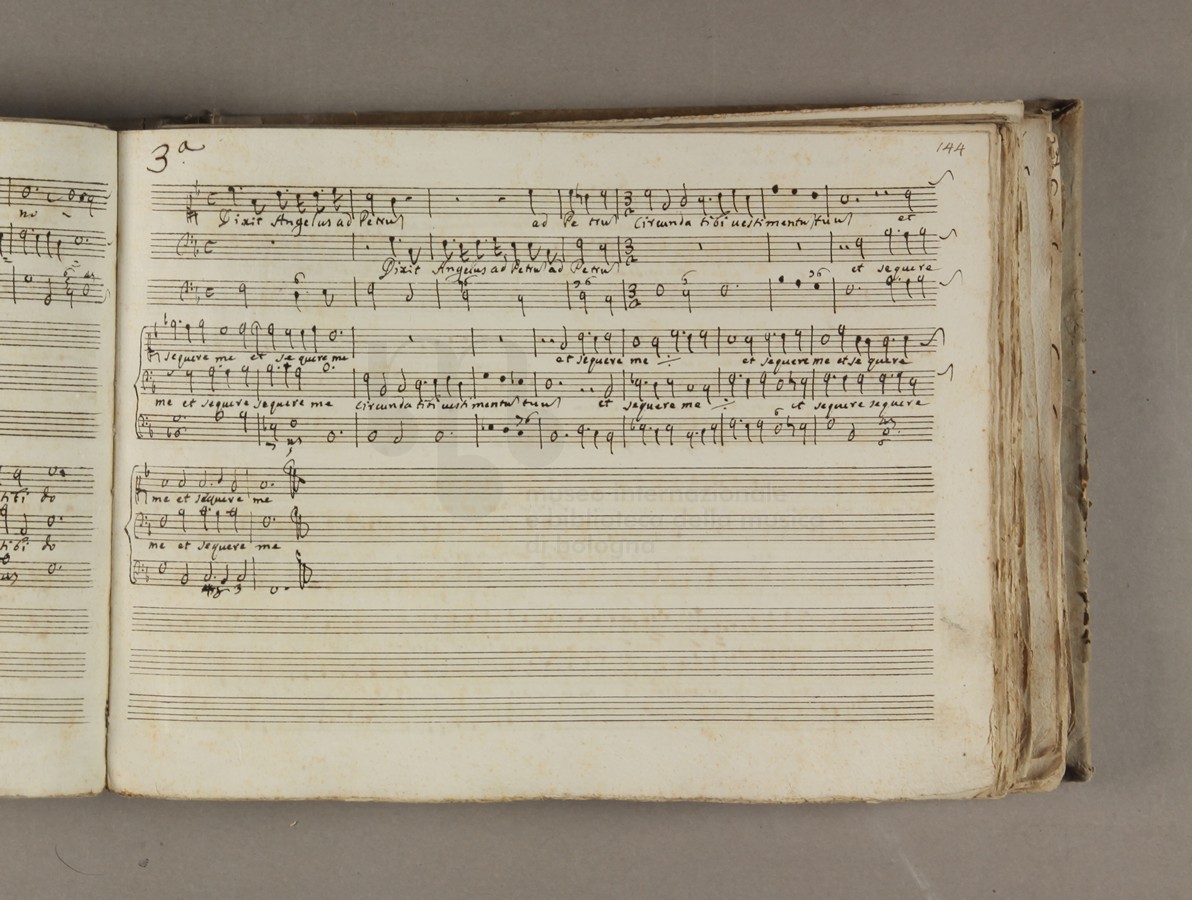 3ª
144
Dixit Angelus ad Petrū ad Petrū Circunda tibi uestimentū tuū et
Dixit Angelus ad Petrū ad Petrū et sequere
sequere me et sequere me et sequere me et sequere me et sequere
me et sequere sequere me Circunda tibi uestimentū tuū et sequere me et sequere sequere
me et sequere me
me et sequere me
museo internazionale
e biblioteca della musica
di bologna